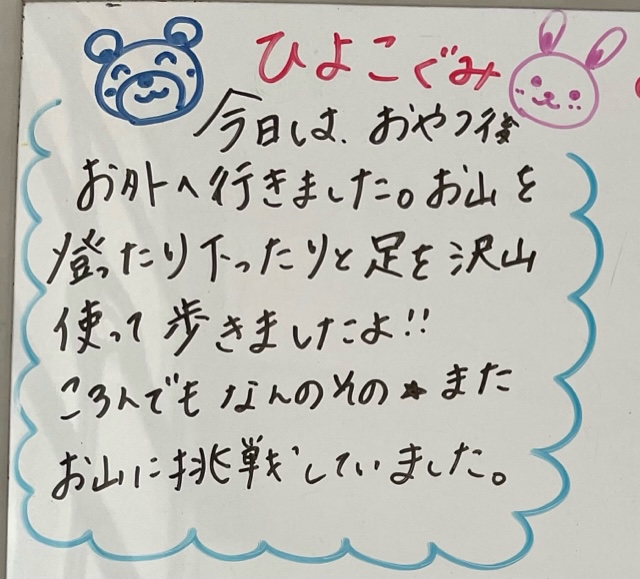 ひよこぐみ
今日は、おやつ後
お外へ行きました。お山を
登ったり下ったりと足を沢山
使って歩きましたよ!!
ころんでもなんのその★また
お山に挑戦していました。